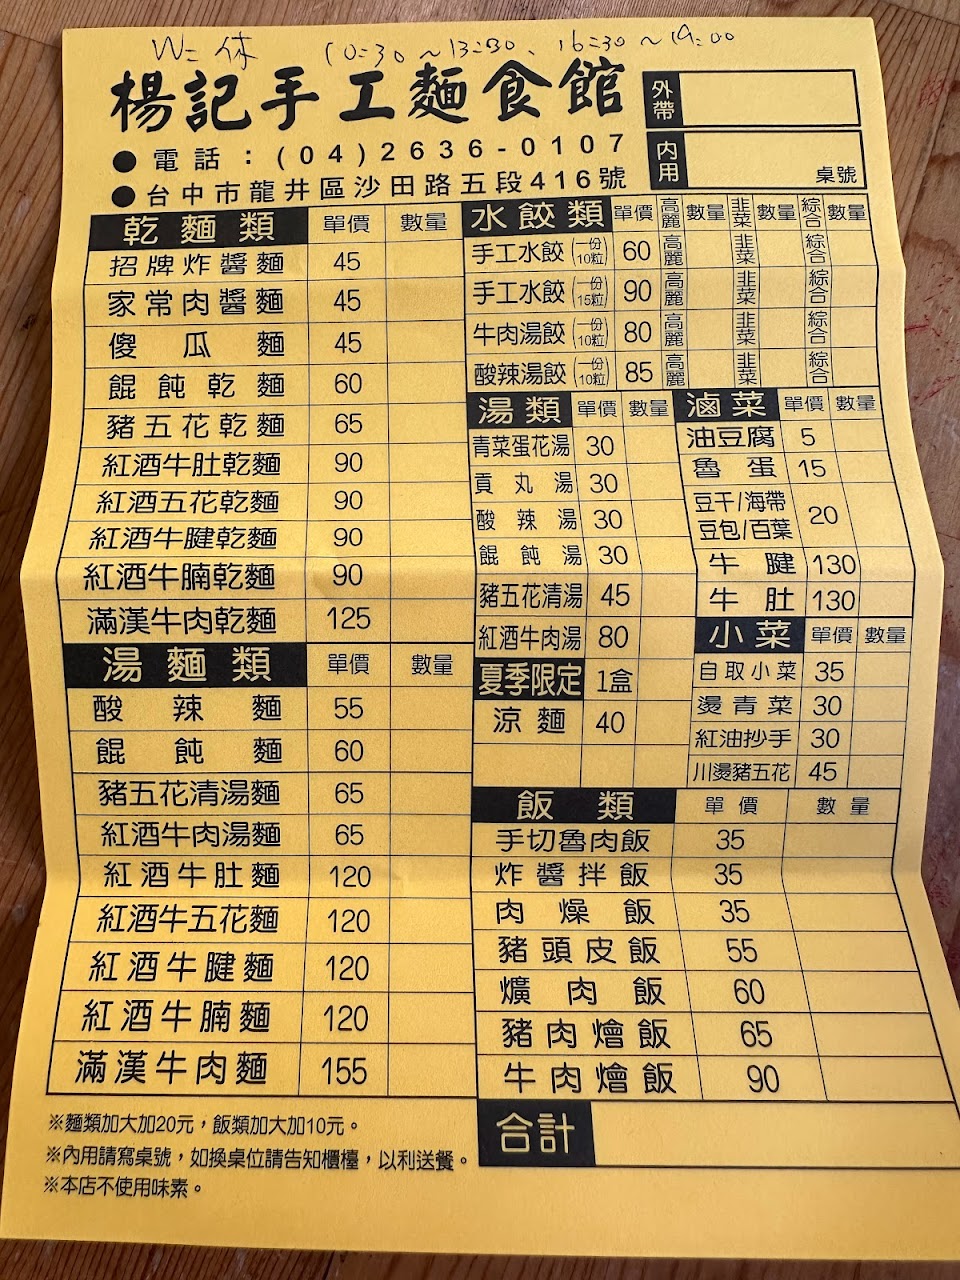 W=休 10=30~13=30、16=30~19=00
楊記手工麵食館
●電話:(04)2636-0107
●台中市龍井區沙田路五段416號
外帶
內用 桌號
乾麵類 單價 數量
招牌炸醬麵 45
家常肉醬麵 45
傻瓜麵 45
餛飩乾麵 60
豬五花乾麵 65
紅酒牛肚乾麵 90
紅酒五花乾麵 90
紅酒牛腱乾麵 90
紅酒牛腩乾麵 90
滿漢牛肉乾麵 125
湯麵類 單價 數量
酸辣麵 55
餛飩麵 60
豬五花清湯麵 65
紅酒牛肉湯麵 65
紅酒牛肚麵 120
紅酒牛五花麵 120
紅酒牛腱麵 120
紅酒牛腩麵 120
滿漢牛肉麵 155
水餃類 單價 高麗 數量 韭菜 數量 綜合 數量
手工水餃(一份10粒) 60 高麗 韭菜 綜合
手工水餃(一份15粒) 90 高麗 韭菜 綜合
牛肉湯餃(一份10粒) 80 高麗 韭菜 綜合
酸辣湯餃(一份10粒) 85 高麗 韭菜 綜合
湯類 單價 數量
青菜蛋花湯 30
貢丸湯 30
酸辣湯 30
餛飩湯 30
豬五花清湯 45
紅酒牛肉湯 80
夏季限定 1盒
涼麵 40
滷菜 單價 數量
油豆腐 5
魯蛋 15
豆干/海帶
豆包/百葉 20
牛腱 130
牛肚 130
小菜 單價 數量
自取小菜 35
燙青菜 30
紅油抄手 30
川燙豬五花 45
飯類 單價 數量
手切魯肉飯 35
炸醬拌飯 35
肉燥飯 35
豬頭皮飯 55
爌肉飯 60
豬肉燴飯 65
牛肉燴飯 90
合計
※麵類加大加20元,飯類加大加10元。
※內用請寫桌號,如換桌位請告知櫃檯,以利送餐。
※本店不使用味素。